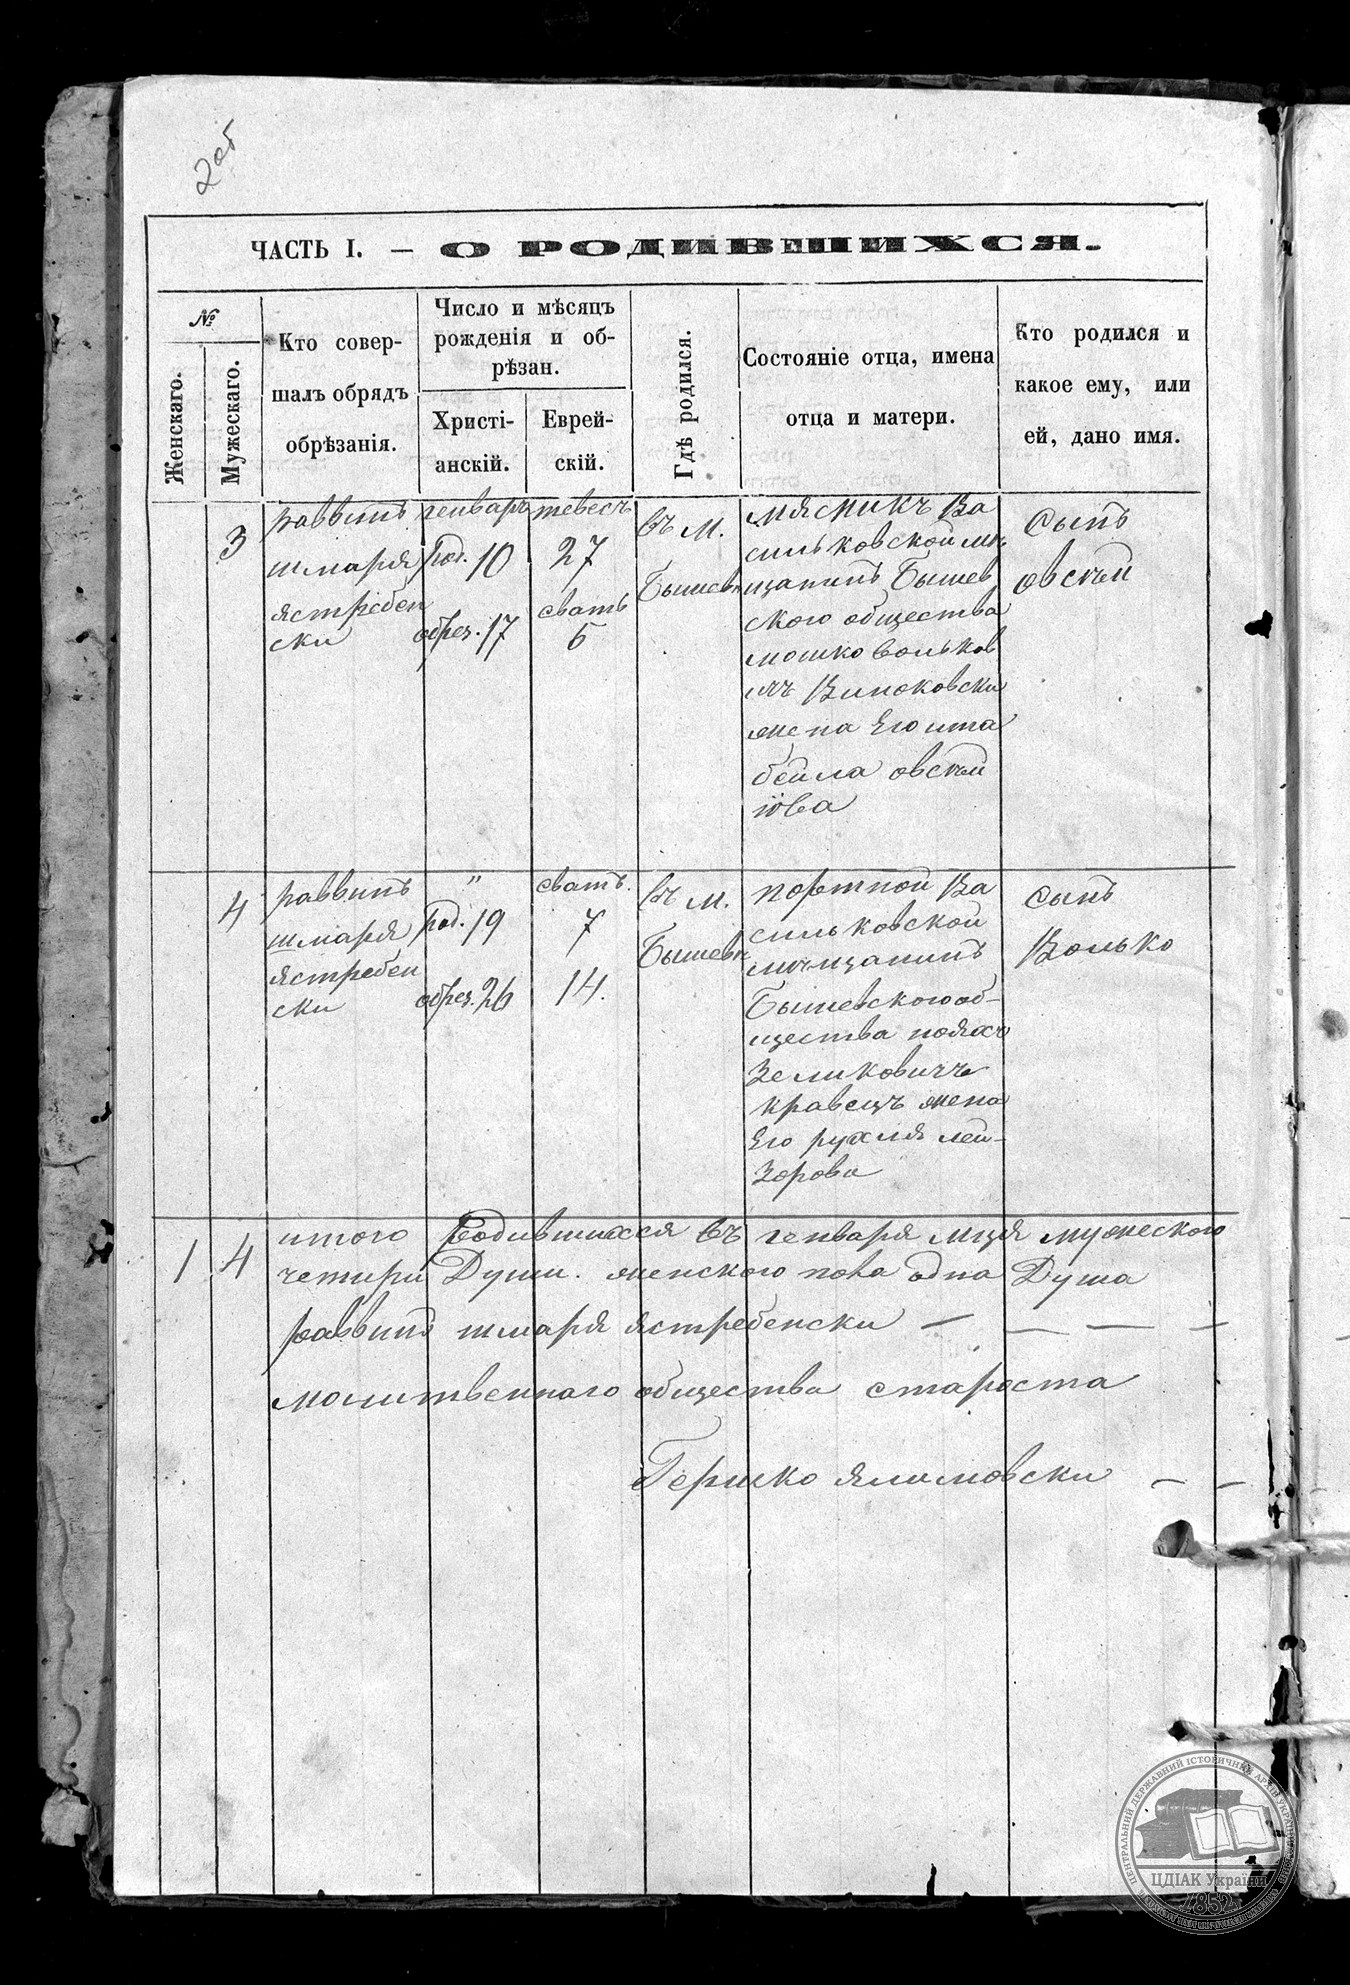 2об
ЧАСТЬ I. — О РОДИВШИХСЯ.
№
Женскаго.
Мужескаго.
Кто совер-
шалъ обрядъ
обрѣзанія.
Число и мѣсяцъ
рожденія и об-
рѣзан.
Христі-
анскій.
Еврей-
скій.
Гдѣ родился.
Состояніе отца, имена
отца и матери.
Кто родился и
какое ему, или
ей, дано имя.
3
раввинъ
шмаря
ястребен
ски
генваръ
род. 10
обрез. 17
тевесъ
27
сватъ
5
въ м.
Бышевъ
мясникъ Ва
сильковской мѣ
щанинъ Бышев
ского общества
мошко вольков
ичъ
жена Его ита
бейла овсѣй
іова
Сынъ
овсѣй
4
раввинъ
шмаря
ястребен
ски
"
род. 19
обрез. 26
сватъ.
7
14.
въ м.
Бышевъ
портной Ва
сильковской
мѣщанинъ
Бышевского об-
щества
Зеликовичъ
кравецъ жена
Его рухля лей-
зорова
сынъ
Волько
1 4
итого Родившихся въ генваря мця мужеского
четири Души. женского пола одна Душа
раввинъ шмаря ястребенски — — — —
молитвеннаго общества староста
Гершко ялимовски — —
ЦЕНТРАЛЬНИЙ ДЕРЖАВНИЙ ІСТОРИЧНИЙ АРХІВ УКРАЇНИ
ЦДІАК України
1852